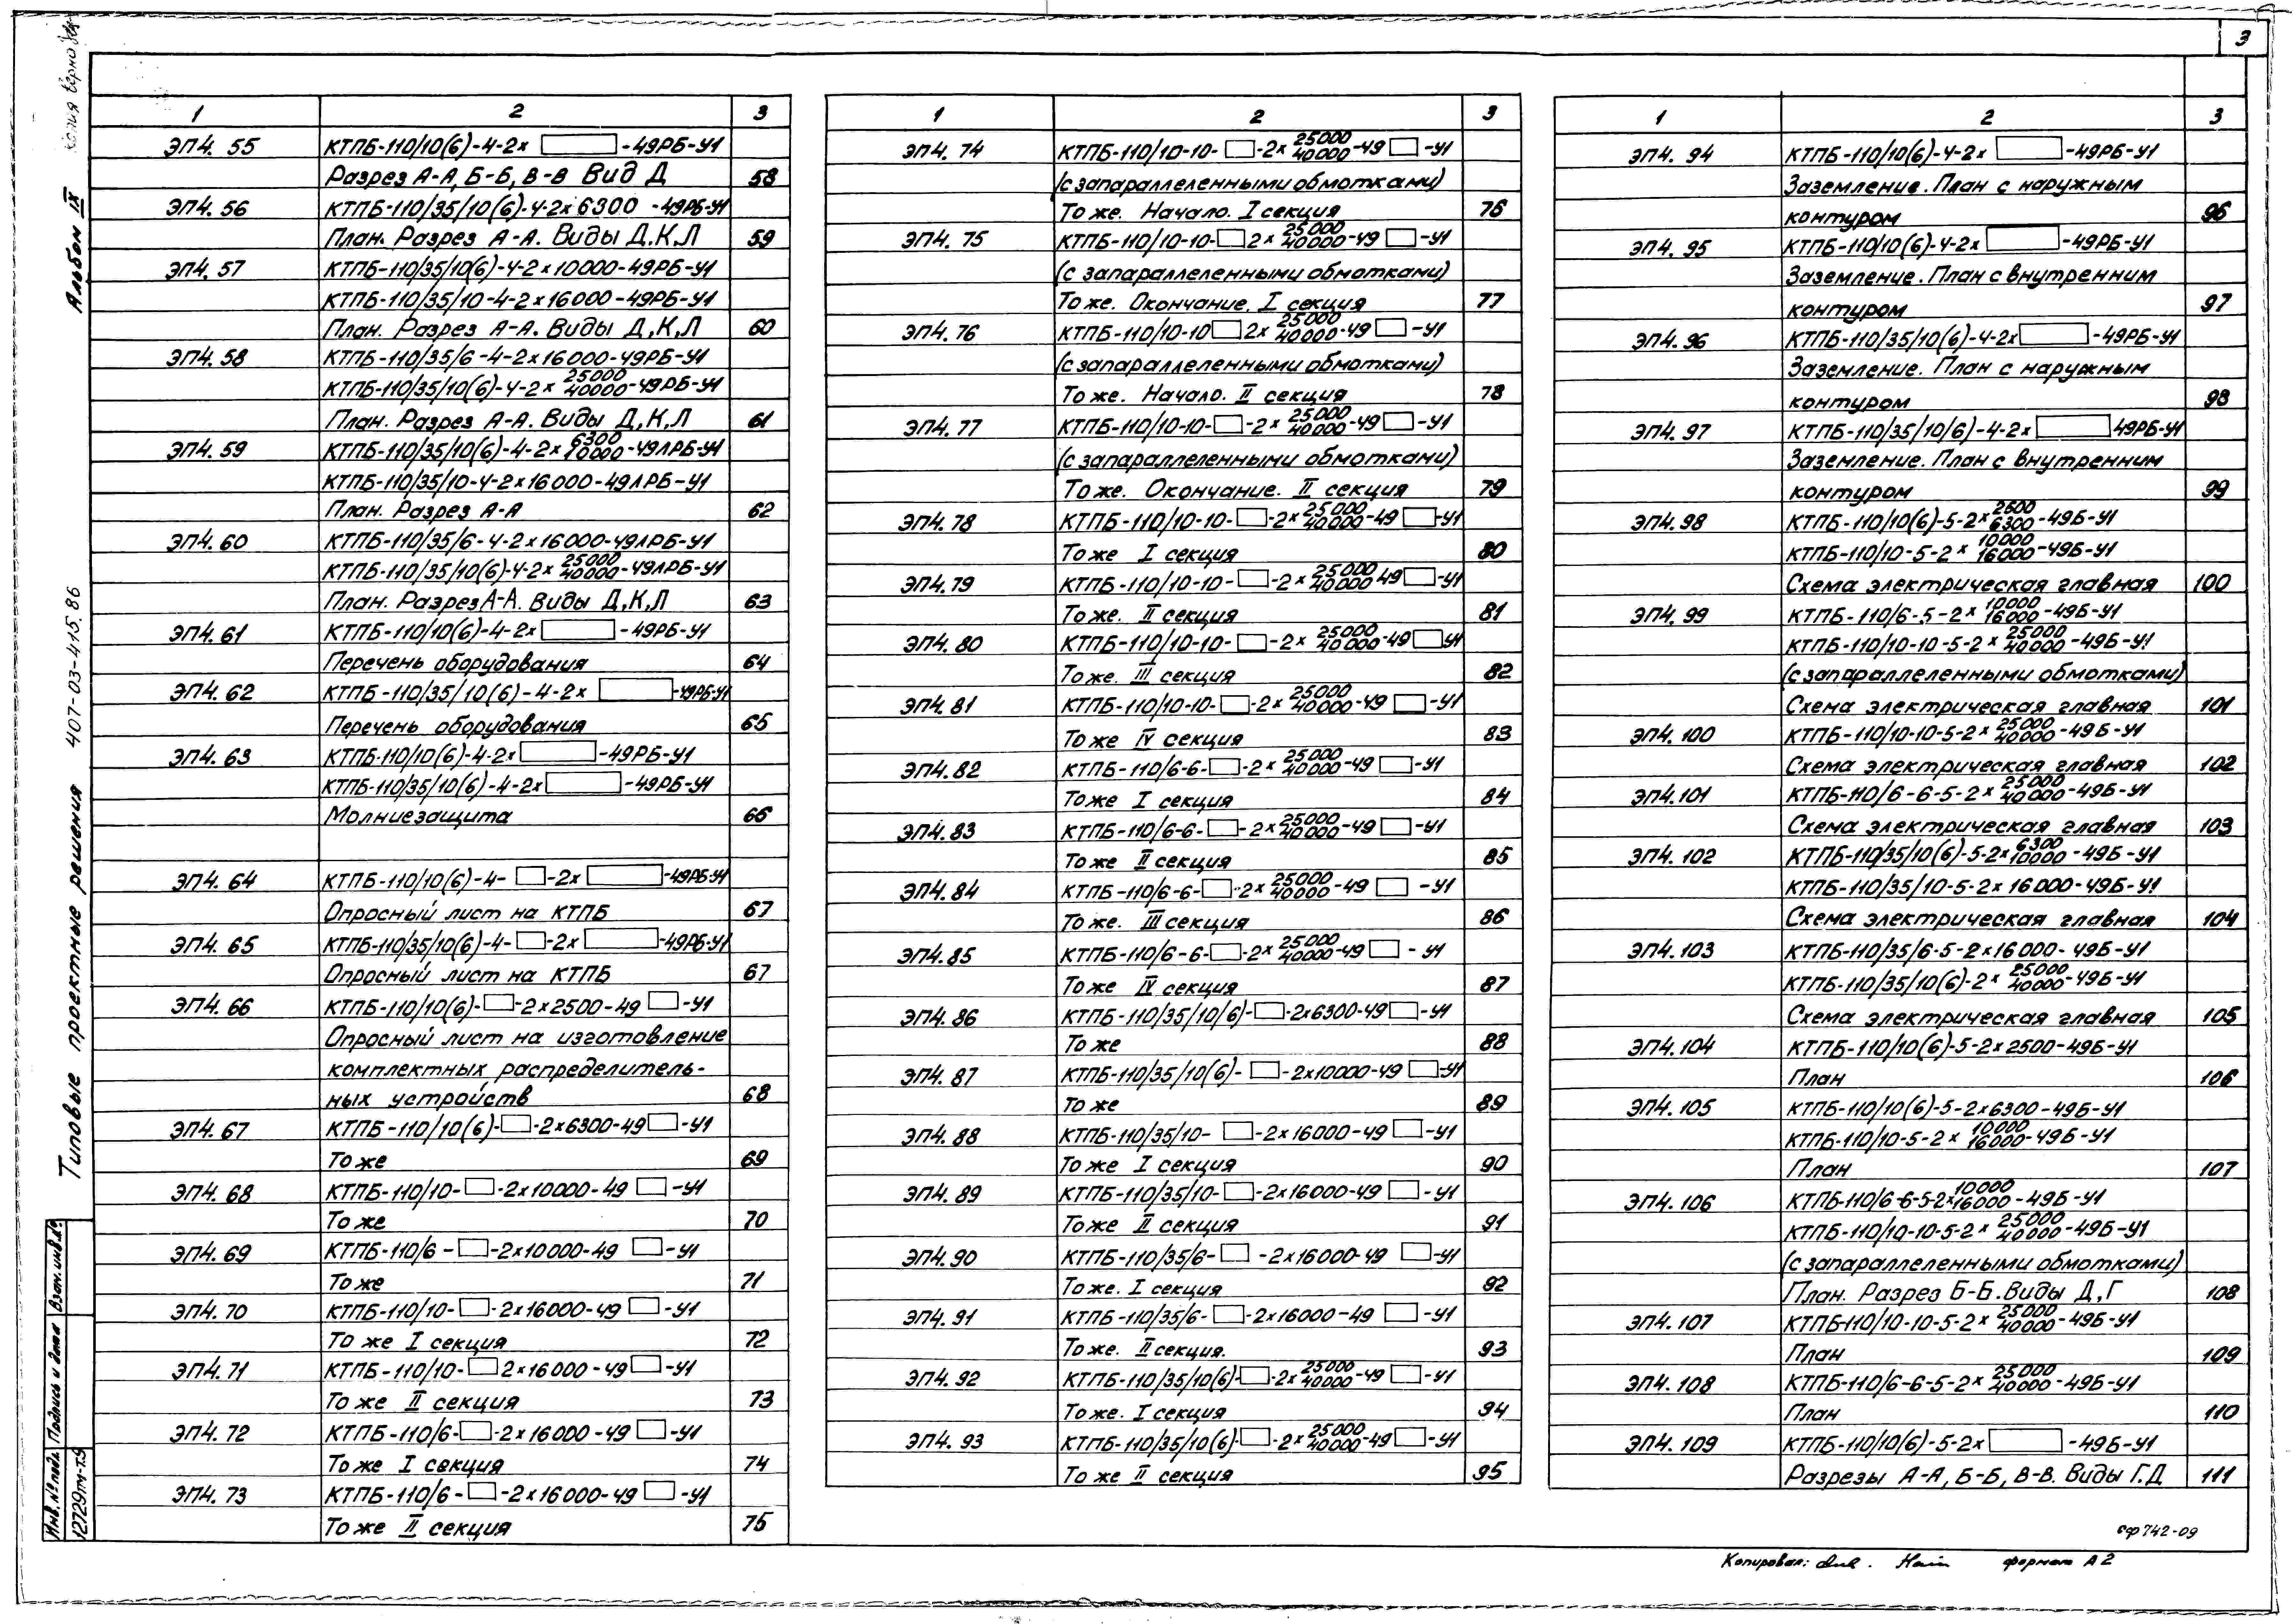 3
1 2 3
ЭП4. 55 КТПБ-110/10(6)-4-2х -49РБ-У1
Разрез А-А, Б-Б, В-В Вид Д 58
ЭП4. 56 КТПБ-110/35/10(6)-4-2х6300 -49РБ-У1
План. Разрез А-А. Виды Д,К,Л 59
ЭП4. 57 КТПБ-110/35/10(6)-4-2х10000-49РБ-У1
КТПБ-110/35/10-4-2х16000-49РБ-У1
План. Разрез А-А. Виды Д,К,Л 60
ЭП4. 58 КТПБ-110/35/6-4-2х16000-49РБ-У1
КТПБ-110/35/10(6)-4-2х 25000/40000-49РБ-У1
План. Разрез А-А. Виды Д,К,Л 61
ЭП4. 59 КТПБ-110/35/10(6)-4-2х 6300/10000-49ЛРБ-У1
КТПБ-110/35/10-4-2х16000-49ЛРБ-У1
План. Разрез А-А 62
ЭП4. 60 КТПБ-110/35/6-4-2х16000-49ЛРБ-У1
КТПБ-110/35/10(6)-4-2х 25000/40000-49ЛРБ-У1
План. Разрез А-А. Виды Д,К,Л 63
ЭП4. 61 КТПБ-110/10(6)-4-2х -49РБ-У1
Перечень оборудования 64
ЭП4. 62 КТПБ-110/35/10(6)-4-2х -49РБ-У1
Перечень оборудования 65
ЭП4. 63 КТПБ-110/10(6)-4-2х -49РБ-У1
КТПБ-110/35/10(6)-4-2х -49РБ-У1
Молниезащита 66
ЭП4. 64 КТПБ-110/10(6)-4- -2х -49РБ-У1
Опросный лист на КТПБ 67
ЭП4. 65 КТПБ-110/35/10(6)-4- -2х -49РБ-У1
Опросный лист на КТПБ 67
ЭП4. 66 КТПБ-110/10(6)- -2х2500-49 -У1
Опросный лист на изготовление
комплектных распределитель-
ных устройств 68
ЭП4. 67 КТПБ-110/10(6)- -2х6300-49 -У1
То же 69
ЭП4. 68 КТПБ-110/10- -2х10000-49 -У1
То же 70
ЭП4. 69 КТПБ-110/6- -2х10000-49 -У1
То же 71
ЭП4. 70 КТПБ-110/10- -2х16000-49 -У1
То же I секция 72
ЭП4. 71 КТПБ-110/10- 2х16000-49 -У1
То же II секция 73
ЭП4. 72 КТПБ-110/6- -2х16000-49 -У1
То же I секция 74
ЭП4. 73 КТПБ-110/6- -2х16000-49 -У1
То же II секция 75
1 2 3
ЭП4. 74 КТПБ-110/10-10- -2х 25000/40000-49 -У1
(с запараллеленными обмотками)
То же. Начало. I секция 76
ЭП4. 75 КТПБ-110/10-10- 2х 25000/40000-49 -У1
(с запараллеленными обмотками)
То же. Окончание. I секция 77
ЭП4. 76 КТПБ-110/10-10 2х 25000/40000-49 -У1
(с запараллеленными обмотками)
То же. Начало. II секция 78
ЭП4. 77 КТПБ-110/10-10- -2х 25000/40000-49 -У1
(с запараллеленными обмотками)
То же. Окончание. II секция 79
ЭП4. 78 КТПБ-110/10-10- -2х 25000/40000-49 -У1
То же I секция 80
ЭП4. 79 КТПБ-110/10-10- -2х 25000/40000 49 -У1
То же. II секция 81
ЭП4. 80 КТПБ-110/10-10- -2х 25000/40000-49 У1
То же. III секция 82
ЭП4. 81 КТПБ-110/10-10- -2х 25000/40000-49 -У1
То же IV секция 83
ЭП4. 82 КТПБ-110/6-6- -2х 25000/40000-49 -У1
То же I секция 84
ЭП4. 83 КТПБ-110/6-6- -2х 25000/40000-49 -У1
То же II секция 85
ЭП4. 84 КТПБ-110/6-6- -2х 25000/40000-49 -У1
То же. III секция 86
ЭП4. 85 КТПБ-110/6-6- -2х 25000/40000-49 -У1
То же IV секция 87
ЭП4. 86 КТПБ-110/35/10(6)- -2х6300-49 -У1
То же 88
ЭП4. 87 КТПБ-110/35/10(6)- -2х10000-49 -У1
То же 89
ЭП4. 88 КТПБ-110/35/10- -2х16000-49 -У1
То же I секция 90
ЭП4. 89 КТПБ-110/35/10- -2х16000-49 -У1
То же II секция 91
ЭП4. 90 КТПБ-110/35/6- -2х16000-49 -У1
То же. I секция 92
ЭП4. 91 КТПБ-110/35/6- -2х16000-49 -У1
То же. II секция. 93
ЭП4. 92 КТПБ-110/35/10(6)- -2х 25000/40000-49 -У1
То же. I секция 94
ЭП4. 93 КТПБ-110/35/10(6)- -2х 25000/40000-49 -У1
То же II секция 95
1 2 3
ЭП4. 94 КТПБ-110/10(6)-4-2х -49РБ-У1
Заземление. План с наружным
контуром 96
ЭП4. 95 КТПБ-110/10(6)-4-2х -49РБ-У1
Заземление. План с внутренним
контуром 97
ЭП4. 96 КТПБ-110/35/10(6)-4-2х -49РБ-У1
Заземление. План с наружным
контуром 98
ЭП4. 97 КТПБ-110/35/10/6)-4-2х 49РБ-У1
Заземление. План с внутренним
контуром 99
ЭП4. 98 КТПБ-110/10(6)-5-2х 2500/6300-49Б-У1
КТПБ-110/10-5-2х 10000/16000-49Б-У1
Схема электрическая главная 100
ЭП4. 99 КТПБ-110/6-5-2х 10000/16000-49Б-У1
КТПБ-110/10-10-5-2х 25000/40000-49Б-У1
(с запараллеленными обмотками)
Схема электрическая главная 101
ЭП4. 100 КТПБ-110/10-10-5-2х 25000/40000-49Б-У1
Схема электрическая главная 102
ЭП4. 101 КТПБ-110/6-6-5-2х 25000/40000-49Б-У1
Схема электрическая главная 103
ЭП4. 102 КТПБ-110/35/10(6)-5-2х 6300/10000-49Б-У1
КТПБ-110/35/10-5-2х16000-49Б-У1
Схема электрическая главная 104
ЭП4. 103 КТПБ-110/35/6-5-2х16000-49Б-У1
КТПБ-110/35/10(6)-2х 25000/40000-49Б-У1
Схема электрическая главная 105
ЭП4. 104 КТПБ-110/10(6)-5-2х2500-49Б-У1
План 106
ЭП4. 105 КТПБ-110/10(6)-5-2х6300-49Б-У1
КТПБ-110/10-5-2х 10000/16000-49Б-У1
План 107
ЭП4. 106 КТПБ-110/6-6-5-2х 10000/16000-49Б-У1
КТПБ-110/10-10-5-2х 25000/40000-49Б-У1
(с запараллеленными обмотками)
План. Разрез Б-Б. Виды Д,Г 108
ЭП4. 107 КТПБ-110/10-10-5-2х 25000/40000-49Б-У1
План 109
ЭП4. 108 КТПБ-110/6-6-5-2х 25000/40000-49Б-У1
План 110
ЭП4. 109 КТПБ-110/10(6)-5-2х -49Б-У1
Разрезы А-А, Б-Б, В-В. Виды Г.Д 111
сф 742-09
Копировал: формат А2
Типовые проектные решения 407-03-415.86 Альбом IX копия верно
Инв.№подл. Подпись и дата Взам.инв.№
12729тм-т9